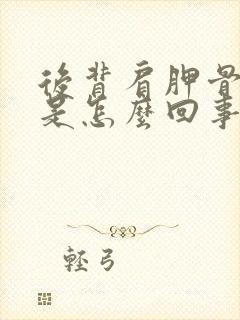 後背肩胛骨
是怎麼回事
輕弓